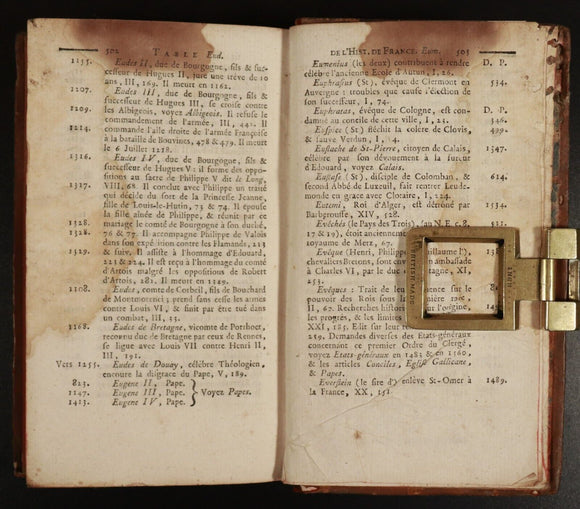 502 TABLE Eud.
1155. Eudes II, duc de Bourgogne, fils & suc-
cesseur de Hugues II, jure une trêve de 10
ans, III, 169. Il meurt en 1162.
1207. Eudes III, duc de Bourgogne, fils &
successeur de Hugues III, se croise contre
1209. les Albigeois, voyez Albigeois. Il refuse le
commandement de l'armée, III, 442. Il
1214. commande l'aîle droite de l'armée Françoise
à la bataille de Bouvines, 478 & 479. Il meurt
le 6 Juillet 1218.
1316. Eudes IV, duc de Bourgogne, fils &
successeur de Hugues V: il forme des oppo-
sitions au sacre de Philippe V dit le Long,
1317. VIII, 68. Il conclut avec Philippe un traité
qui décide du sort de la Princesse Jeanne,
fille de Louis-le-Hutin, 73 & 74. Il épouse
la fille aînée de Philippe, & réunit par ce
mariage le comté de Bourgogne à son duché,
1328. 76 & 77. Il accompagne Philippe de Valois
1328. dans son expédition contre les Flamands, 213
1329. & suiv. Il assiste à l'hommage d'Edouard,
221 & 224. Il est reçu à l'hommage du comté
d'Artois malgré les oppositions de Robert
d'Artois, 281. Il meurt en
1108. Eudes, comte de Corbeil, fils de Bouchard
de Montmorenci; prend sans cesse les armes
contre Louis VI, & finit par être tué dans
un combat, III, 23.
1168. Eudes de Bretagne, vicomte de Porrhoet,
reconnu duc de Bretagne par ceux de Rennes,
se ligue avec Louis VII contre Henri II,
III, 191.
Vers 1255. Eudes de Douay, célébre Théologien,
encoure la disgrace du Pape, V, 189.
823. Eugene II, Pape.
1147. Eugene III, Pape. Voyez Papes.
1413. Eugene IV, Pape.
DE L'HIST. DE FRANCE. Eum. 503
Eumenius (les deux) contribuent à rendre D. P.
célébre l'ancienne Ecole d'Autun, I, 26.
Euphrasius (St), évêque de Clermont en 534.
Auvergne: troubles que cause l'élection de
son successeur, I, 74.
Euphratas, évêque de Cologne, est con- D. P.
damné au concile de cette ville, I, 21. 346.
Euspice (St) fléchit la colère de Clovis, 499.
& sauve Verdun, I,
Eustache de St-Pierre, citoyen de Calais, 1347.
célébre par son dévouement à la fureur
d'Edouard, voyez Calais.
Eustase (St), disciple de Colomban, & 614.
second Abbé de Luxeuil, fait rentrer Leude-
monde en grace avec Clotaire, I, 224.
Eutemi, Roi d'Alger, est détrôné par 1534.
Barberousse, XIV, 528.
Evêchés (le Pays des Trois), au N. E. c. 8, 511.
17 & 19), étoit anciennement
royaume de Metz, 67.
Evêque (Henri, Philippe Guillaume l'),
chevaliers Bretons, sont envoyés en ambassade
à Charles VI, par le duc de Bretagne, XI,
253.
Evêques: Trait de leur sur le
pouvoir des Rois sous la première race,
II, 67. Recherches histor sur l'origine,
les progrès, & les limites
XXI, 185. Edit sur leur
259. Demandes diverses des Etats-généraux
concernant ce premier Ordre du Clergé,
voyez Etats-généraux en 1483 & en 1560,
& les articles Conciles, Eglise Gallicane,
& Papes.
Everstein (le sire d') enlève St-Omer à 1489.
la France, XX, 151.
BRITISH MADE